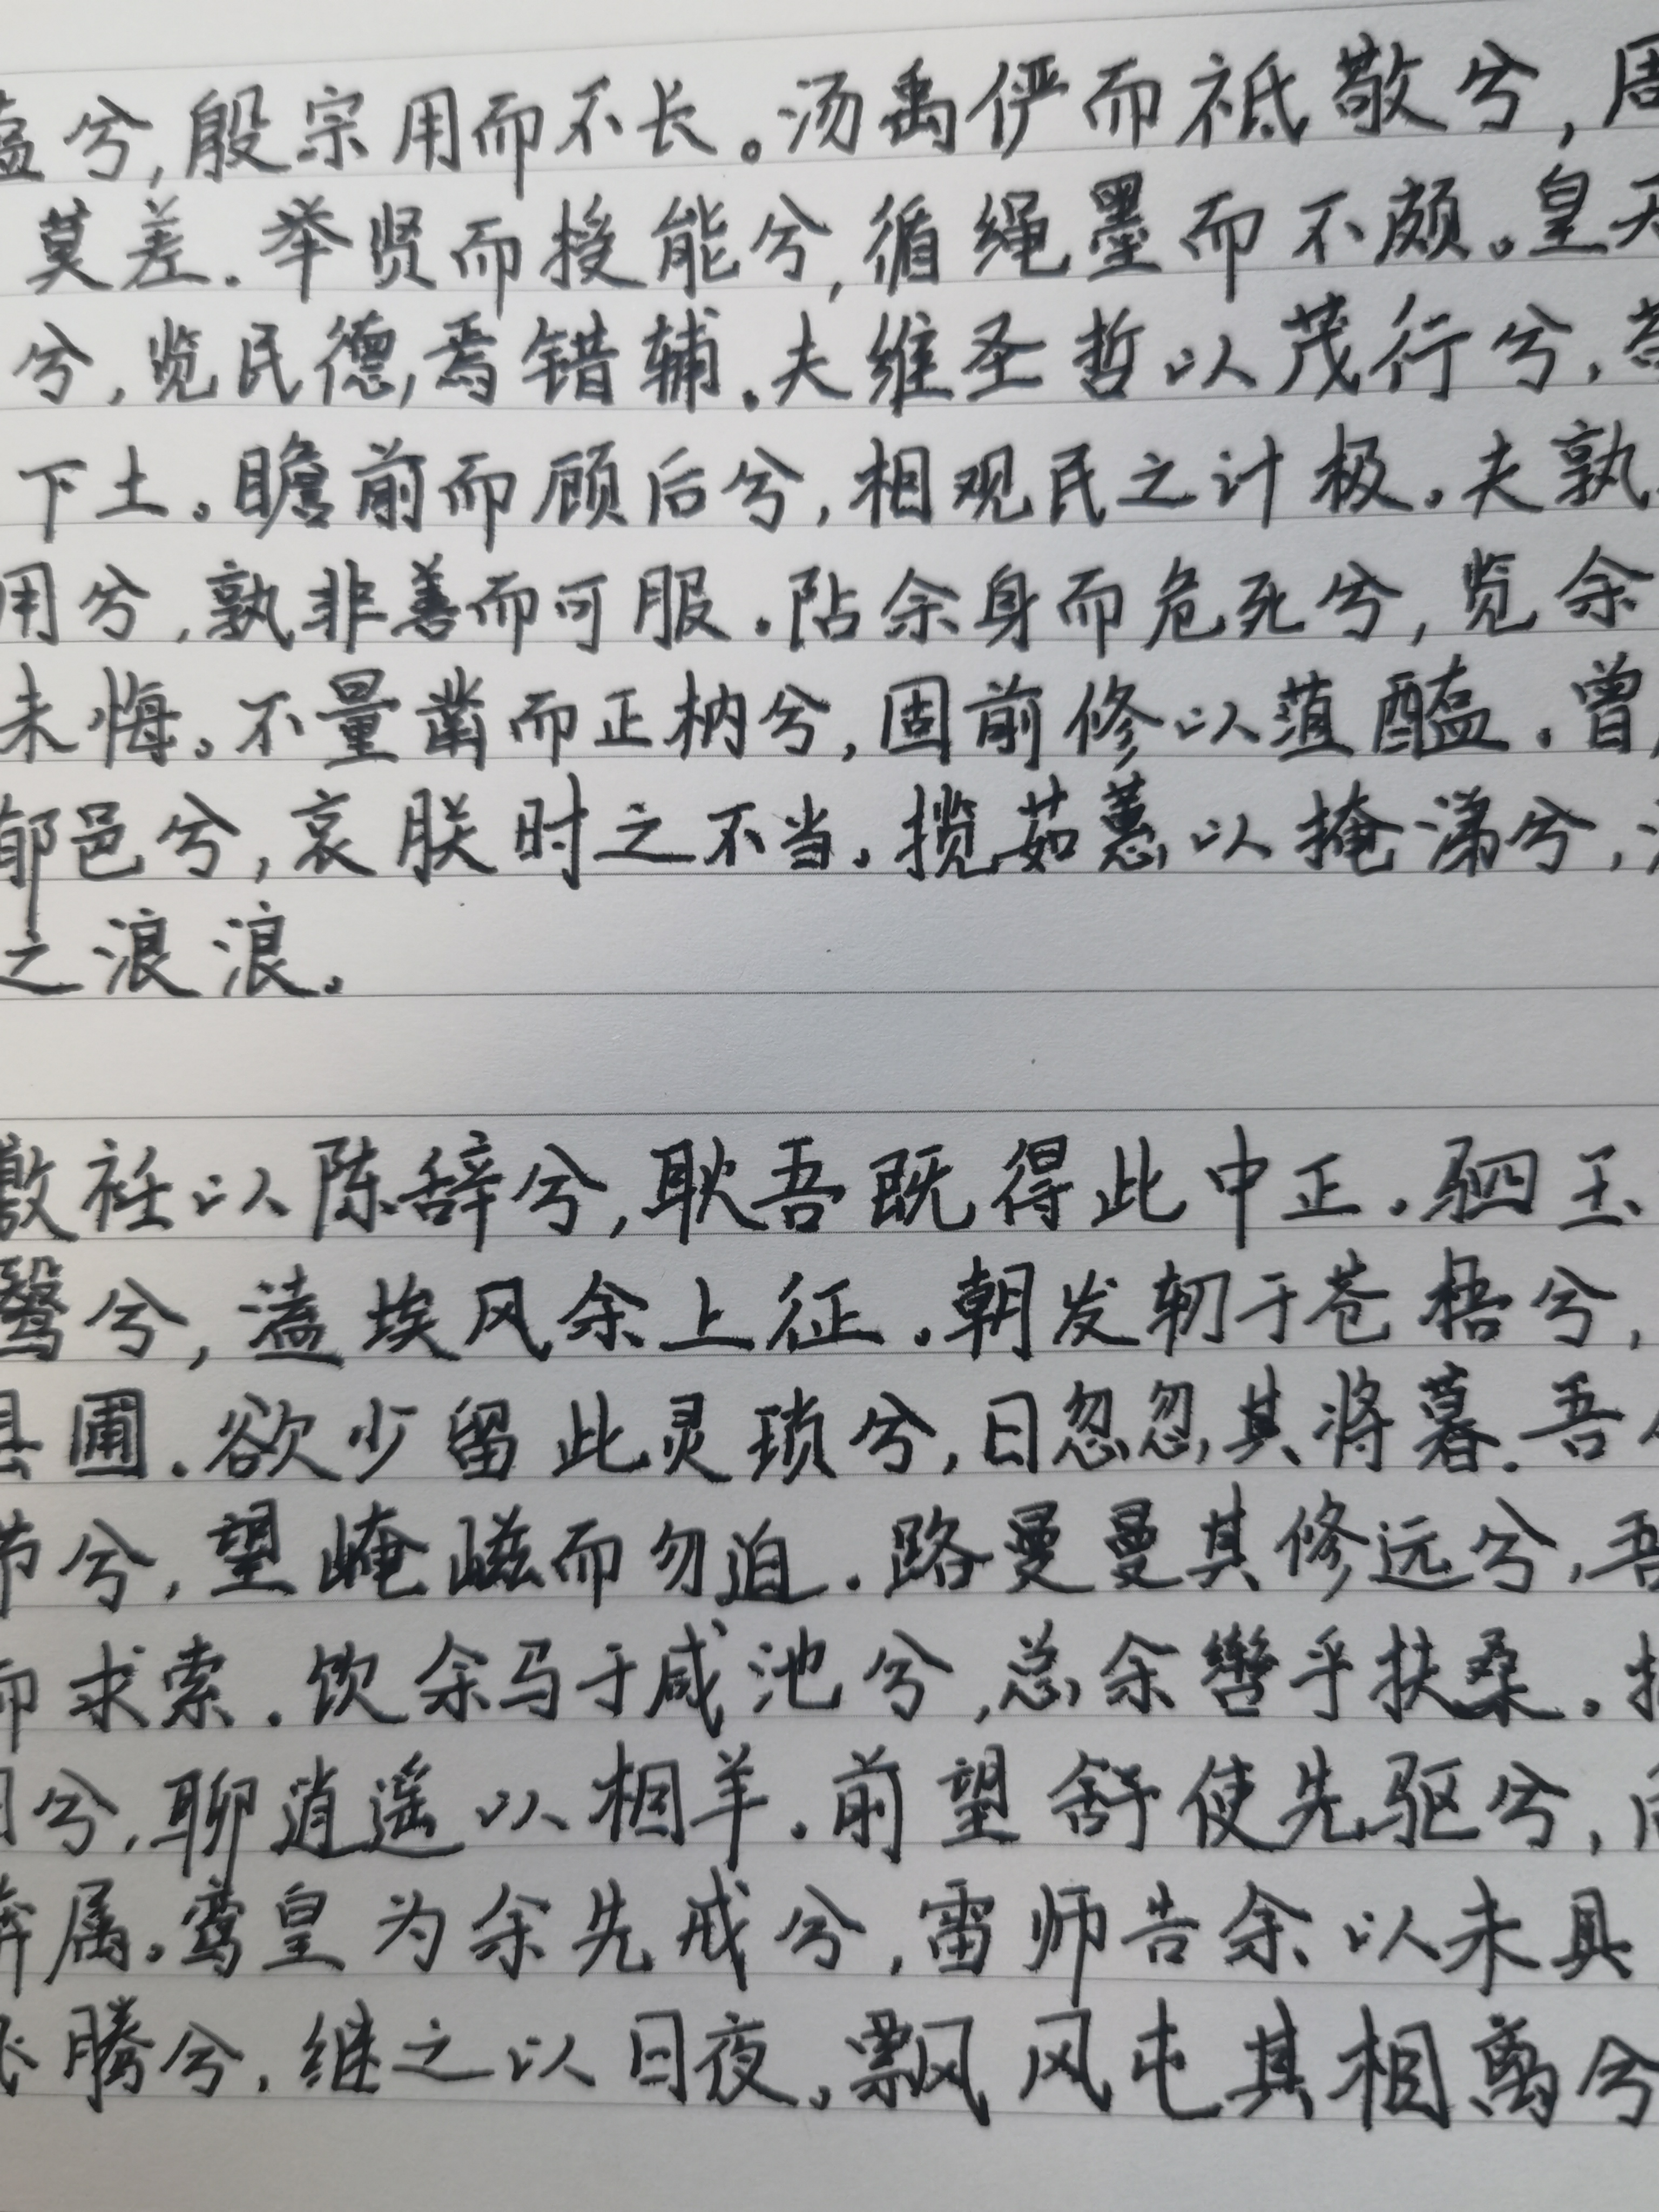 兮,殷宗用而不长。汤禹俨而祗敬兮,周
莫差.举贤而授能兮,循绳墨而不颇。皇天
兮,览民德焉错辅.夫维圣哲以茂行兮,苟
下土。瞻前而顾后兮,相观民之计极.夫孰
用兮,孰非善而可服.阽余身而危死兮,览余
未悔。不量凿而正枘兮,固前修以菹醢.曾
郁邑兮,哀朕时之不当.揽茹蕙以掩涕兮,
之浪浪。
敷衽以陈辞兮,耿吾既得此中正.驷玉
鹥兮,溘埃风余上征.朝发轫于苍梧兮,
县圃.欲少留此灵琐兮,日忽忽其将暮.吾
节兮,望崦嵫而勿迫.路曼曼其修远兮,吾
而求索.饮余马于咸池兮,总余辔乎扶桑.
兮,聊逍遥以相羊.前望舒使先驱兮,
奔属。鸾皇为余先戒兮,雷师告余以未具
飞腾兮,继之以日夜.飘风屯其相离兮